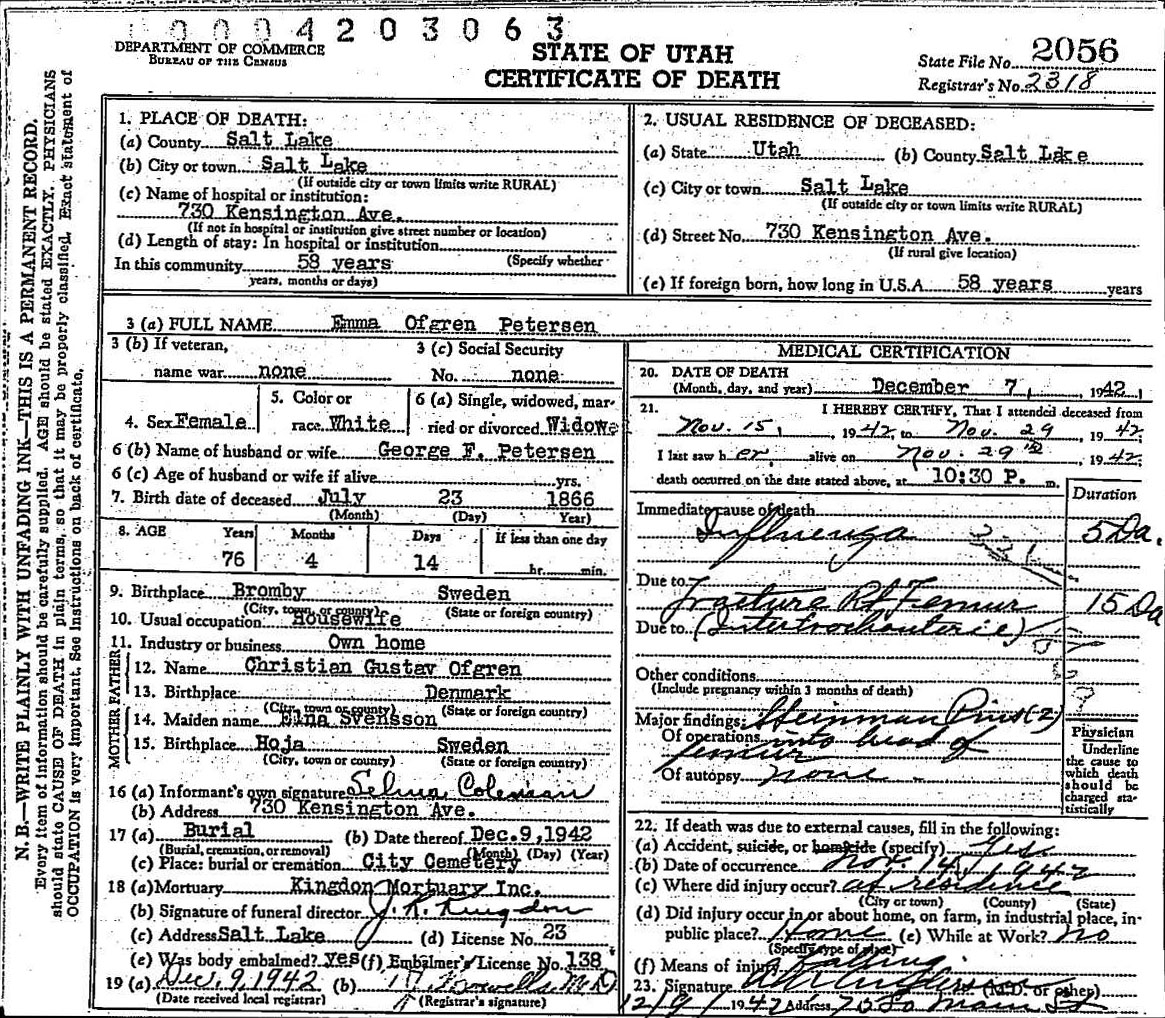 0004203063
DEPARTMENT OF COMMERCE
BUREAU OF THE CENSUS
STATE OF UTAH
CERTIFICATE OF DEATH
State File No. 2056
Registrar's No. 2318
N. B.—WRITE PLAINLY WITH UNFADING INK—THIS IS A PERMANENT RECORD.
Every item of information should be carefully supplied. AGE should be stated EXACTLY. PHYSICIANS
should state CAUSE OF DEATH in plain terms, so that it may be properly classified. Exact statement of
OCCUPATION is very important. See instructions on back of certificate.
1. PLACE OF DEATH:
(a) County Salt Lake
(b) City or town Salt Lake
(If outside city or town limits write RURAL)
(c) Name of hospital or institution:
730 Kensington Ave.
(If not in hospital or institution give street number or location)
(d) Length of stay: In hospital or institution
(Specify whether
In this community 58 years
years, months or days)
2. USUAL RESIDENCE OF DECEASED:
(a) State Utah (b) County Salt Lake
(c) City or town Salt Lake
(If outside city or town limits write RURAL)
(d) Street No. 730 Kensington Ave.
(If rural give location)
(e) If foreign born, how long in U.S.A. 58 years years
3 (a) FULL NAME Emma Ofgren Petersen
3 (b) If veteran,
name war none
3 (c) Social Security
No. none
4. Sex Female
5. Color or
race White
6 (a) Single, widowed, mar-
ried or divorced Widowe
6 (b) Name of husband or wife George F. Petersen
6 (c) Age of husband or wife if alive yrs.
7. Birth date of deceased July 23 1866
(Month) (Day) Year)
8. AGE Years Months Days If less than one day
76 4 14 hr. min.
9. Birthplace Bromby Sweden
(City, town, or county) (State or foreign country)
10. Usual occupation Housewife
11. Industry or business Own home
FATHER
12. Name Christian Gustav Ofgren
13. Birthplace Denmark
(City, town or county) (State or foreign country)
MOTHER
14. Maiden name Elna Svensson
15. Birthplace Hoja Sweden
(City, town or county) (State or foreign country)
16 (a) Informant's own signature Selma Coleman
(b) Address 730 Kensington Ave.
17 (a) Burial (b) Date thereof Dec. 9, 1942
(Burial, cremation, or removal) (Month) (Day) (Year)
(c) Place: burial or cremation City Cemetery
18 (a) Mortuary Kingdon Mortuary Inc.
(b) Signature of funeral director J. R. Kingdon
(c) Address Salt Lake (d) License No. 23
(e) Was body embalmed? yes (f) Embalmer's License No. 138
19 (a) Dec. 9, 1942 (b) M.D.
(Date received local registrar) (Registrar's signature)
MEDICAL CERTIFICATION
20. DATE OF DEATH
(Month, day, and year) December 7, 1942
21. I HEREBY CERTIFY, That I attended deceased from
Nov. 15, 1942 to Nov. 29, 1942
I last saw her alive on Nov. 29 1942
death occurred on the date stated above, at 10:30 P. m.
Duration
Immediate cause of death
Influenza 5 Da.
Due to
fracture Rt Femur 15 Da
Due to (Intertrochanteric)
Other conditions
(Include pregnancy within 3 months of death)
Major findings: Steinman Pins (2)
Of operations into head of
femur
Of autopsy none
Physician
Underline
the cause to
which death
should be
charged sta-
tistically
22. If death was due to external causes, fill in the following:
(a) Accident, suicide, or homicide (specify) Yes
(b) Date of occurrence Nov. 14, 1942
(c) Where did injury occur? at residence
(City or town) (County) (State)
(d) Did injury occur in or about home, on farm, in industrial place, in-
public place? Home (e) While at Work? no
(Specify type of place)
(f) Means of injury falling
23. Signature (M.D. or other)
12/9/1942 Address